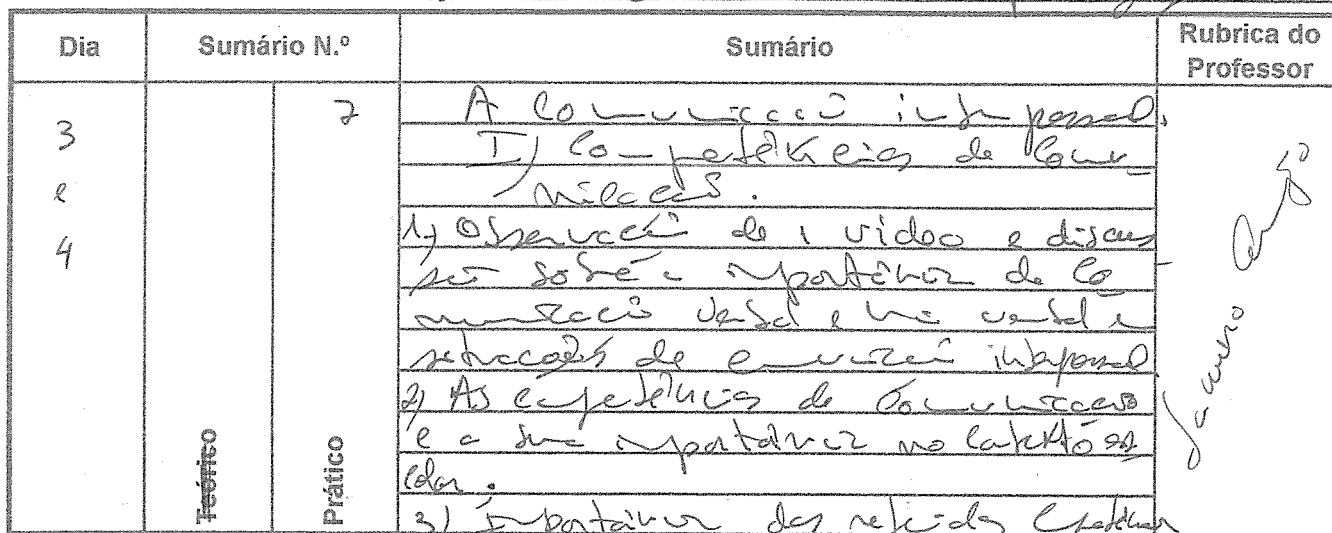 Dia Sumário N.º Sumário Rubrica do Professor
3 e 4
7
Teórico
Prático
A Comunicação interpessoal.
I) Competências de Comu-
nicação.
1) Observação de 1 vídeo e discus
são sobre a importância da Co
municação verbal e não verbal em
situações de comunicação interpessoal
2) As competências de Comunicação
e a sua importância no contexto es
colar.
3) Importância das referidas